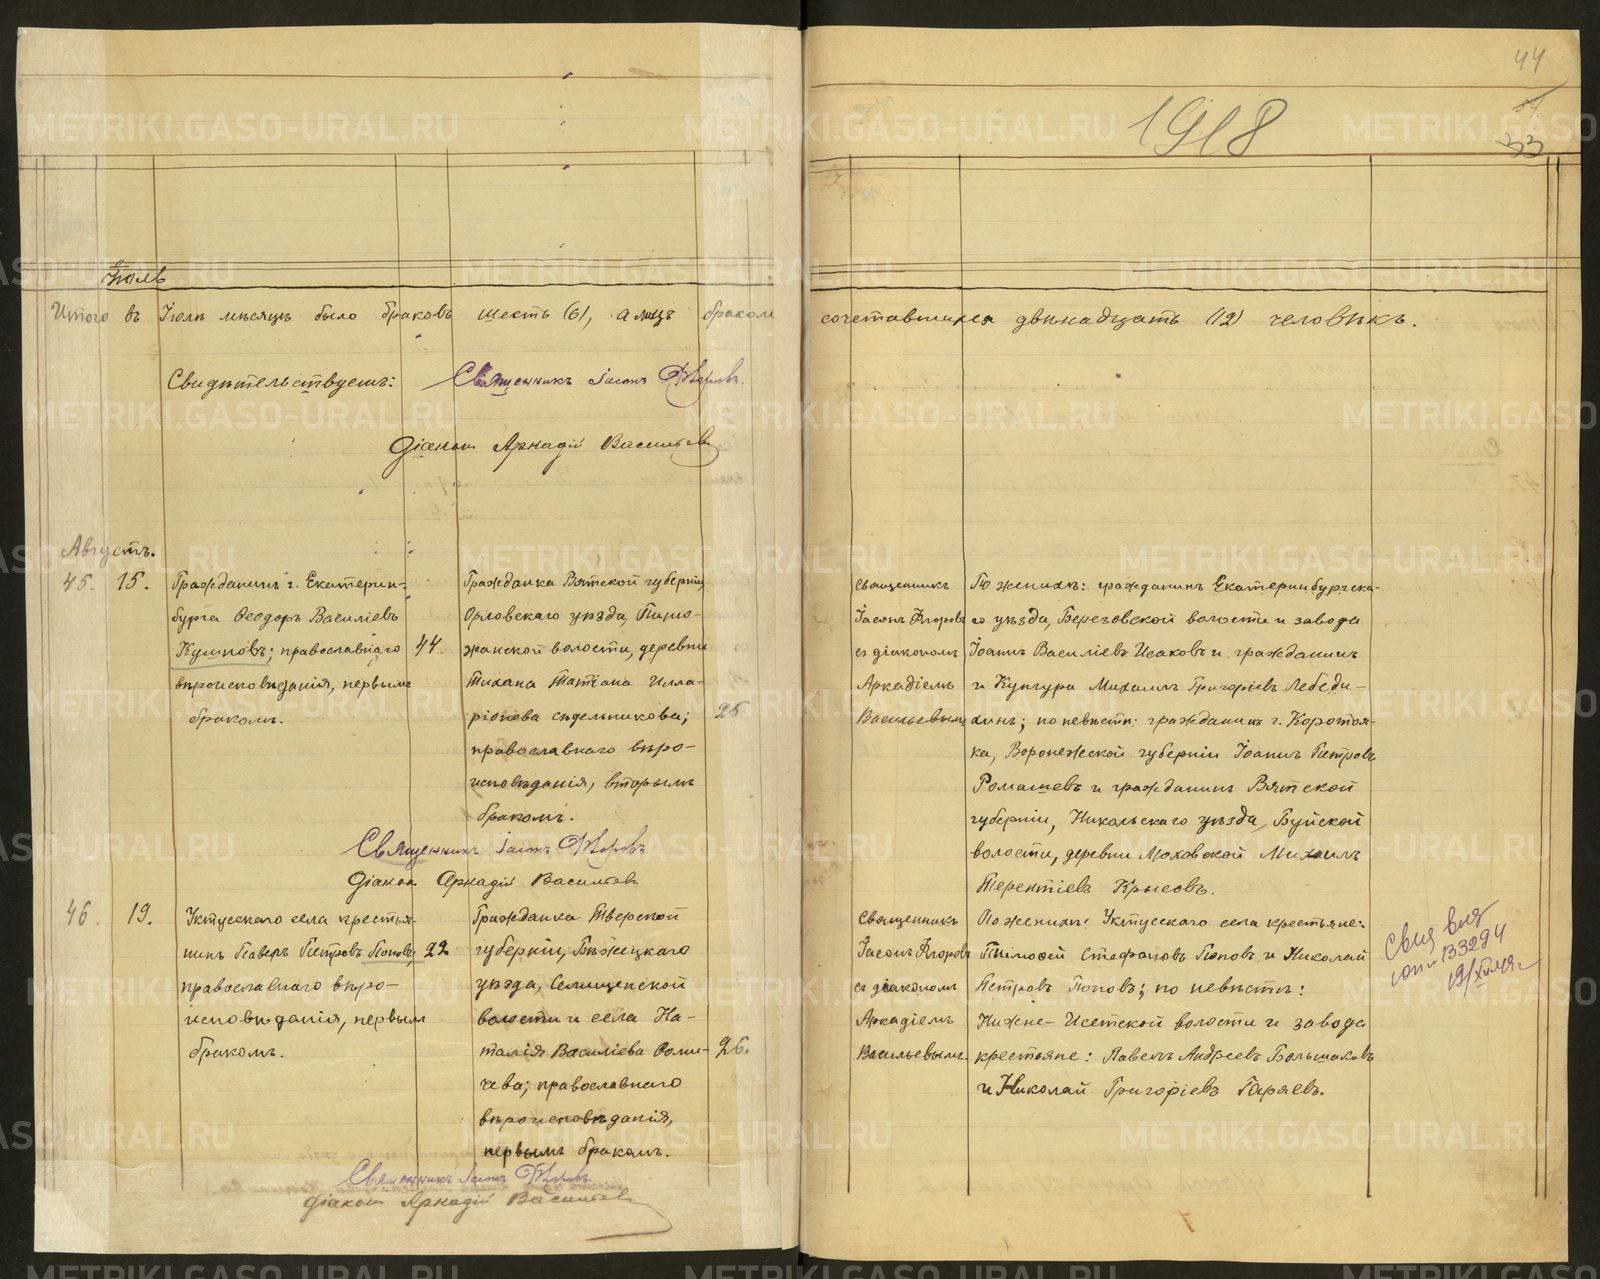 44
1918
33
Іюль
Итого въ Іюлѣ мѣсяцѣ было браковъ шесть (6), а лицъ бракомъ сочетавшихся двѣнадцать (12) человѣкъ.
Свидѣтельствуемъ: Священникъ Іасонъ
Діаконъ Аркадій Васильевъ
Августъ.
45. 15.
Гражданинъ г. Екатерин-
бурга Ѳеодоръ Василіевъ
православнаго
вѣроисповѣданія, первымъ
бракомъ.
44.
Гражданка Вятской губерніи,
Орловскаго уѣзда, Пищо-
жанской волости, деревни
Татіана Илла-
ріонова Сѣдельникова;
православнаго вѣро-
исповѣданія, вторымъ
бракомъ.
25
Священникъ
Іасонъ Флоровъ
съ діакономъ
Аркадіемъ
Васильевымъ
По женихѣ: гражданинъ Екатеринбургска-
го уѣзда, Березовской волости и завода
Іоаннъ Василіевъ Исаковъ и гражданинъ
г. Кунгура Михаилъ Григоріевъ Лебеди-
по невѣстѣ: гражданинъ г. Коротоя-
ка, Воронежской губерніи Іоаннъ Петровъ
Ромашевъ и гражданинъ Вятской
губерніи, Никольскаго уѣзда, Буйской
волости, деревни Моховской Михаилъ
Терентіевъ Крысовъ.
Священникъ Іасонъ
Діаконъ Аркадій Васильевъ
46. 19.
Уктусскаго села крестья-
нинъ Павелъ Петровъ Поповъ,
православнаго вѣро-
исповѣданія, первымъ
бракомъ.
22
Гражданка Тверской
губерніи, Бѣжецкаго
уѣзда, Селищенской
волости и села На-
талія Василіева Роми-
чева; православнаго
вѣроисповѣданія,
первымъ бракомъ.
26.
Священникъ
Іасонъ Флоровъ
съ діакономъ
Аркадіемъ
Васильевымъ.
По женихѣ: Уктусскаго села крестьяне:
Тимоѳей Стефановъ Поповъ и Николай
Петровъ Поповъ; по невѣстѣ:
Нижне-Исетской волости и завода
крестьяне: Павелъ Андреевъ Большаковъ
и Николай Григоріевъ Гаряевъ.
133294
Священникъ Іасонъ
Діаконъ Аркадій Васильевъ
METRIKI.GASO-URAL.RU